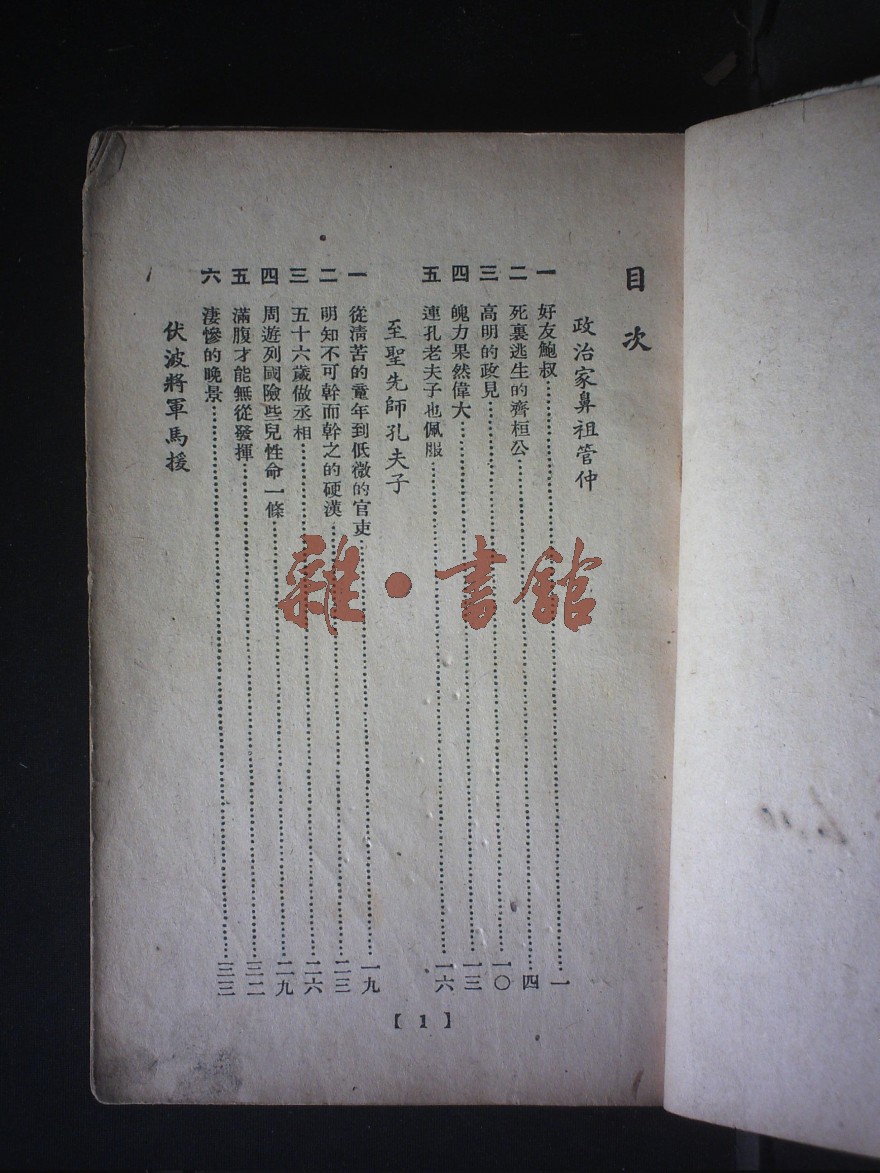 目次
政治家鼻祖管仲
一 好友鮑叔……一
二 死裏逃生的齊桓公……四
三 高明的政見……一〇
四 魄力果然偉大……一三
五 連孔老夫子也佩服……一六
至聖先師孔夫子
一 從清苦的童年到低微的官吏……一九
二 明知不可幹而幹之的硬漢……二三
三 五十六歲做丞相……二六
四 周遊列國險些兒性命一條……二九
五 滿腹才能無從發揮……三二
六 淒慘的晚景……三三
伏波將軍馬援
【1】
雜·書館